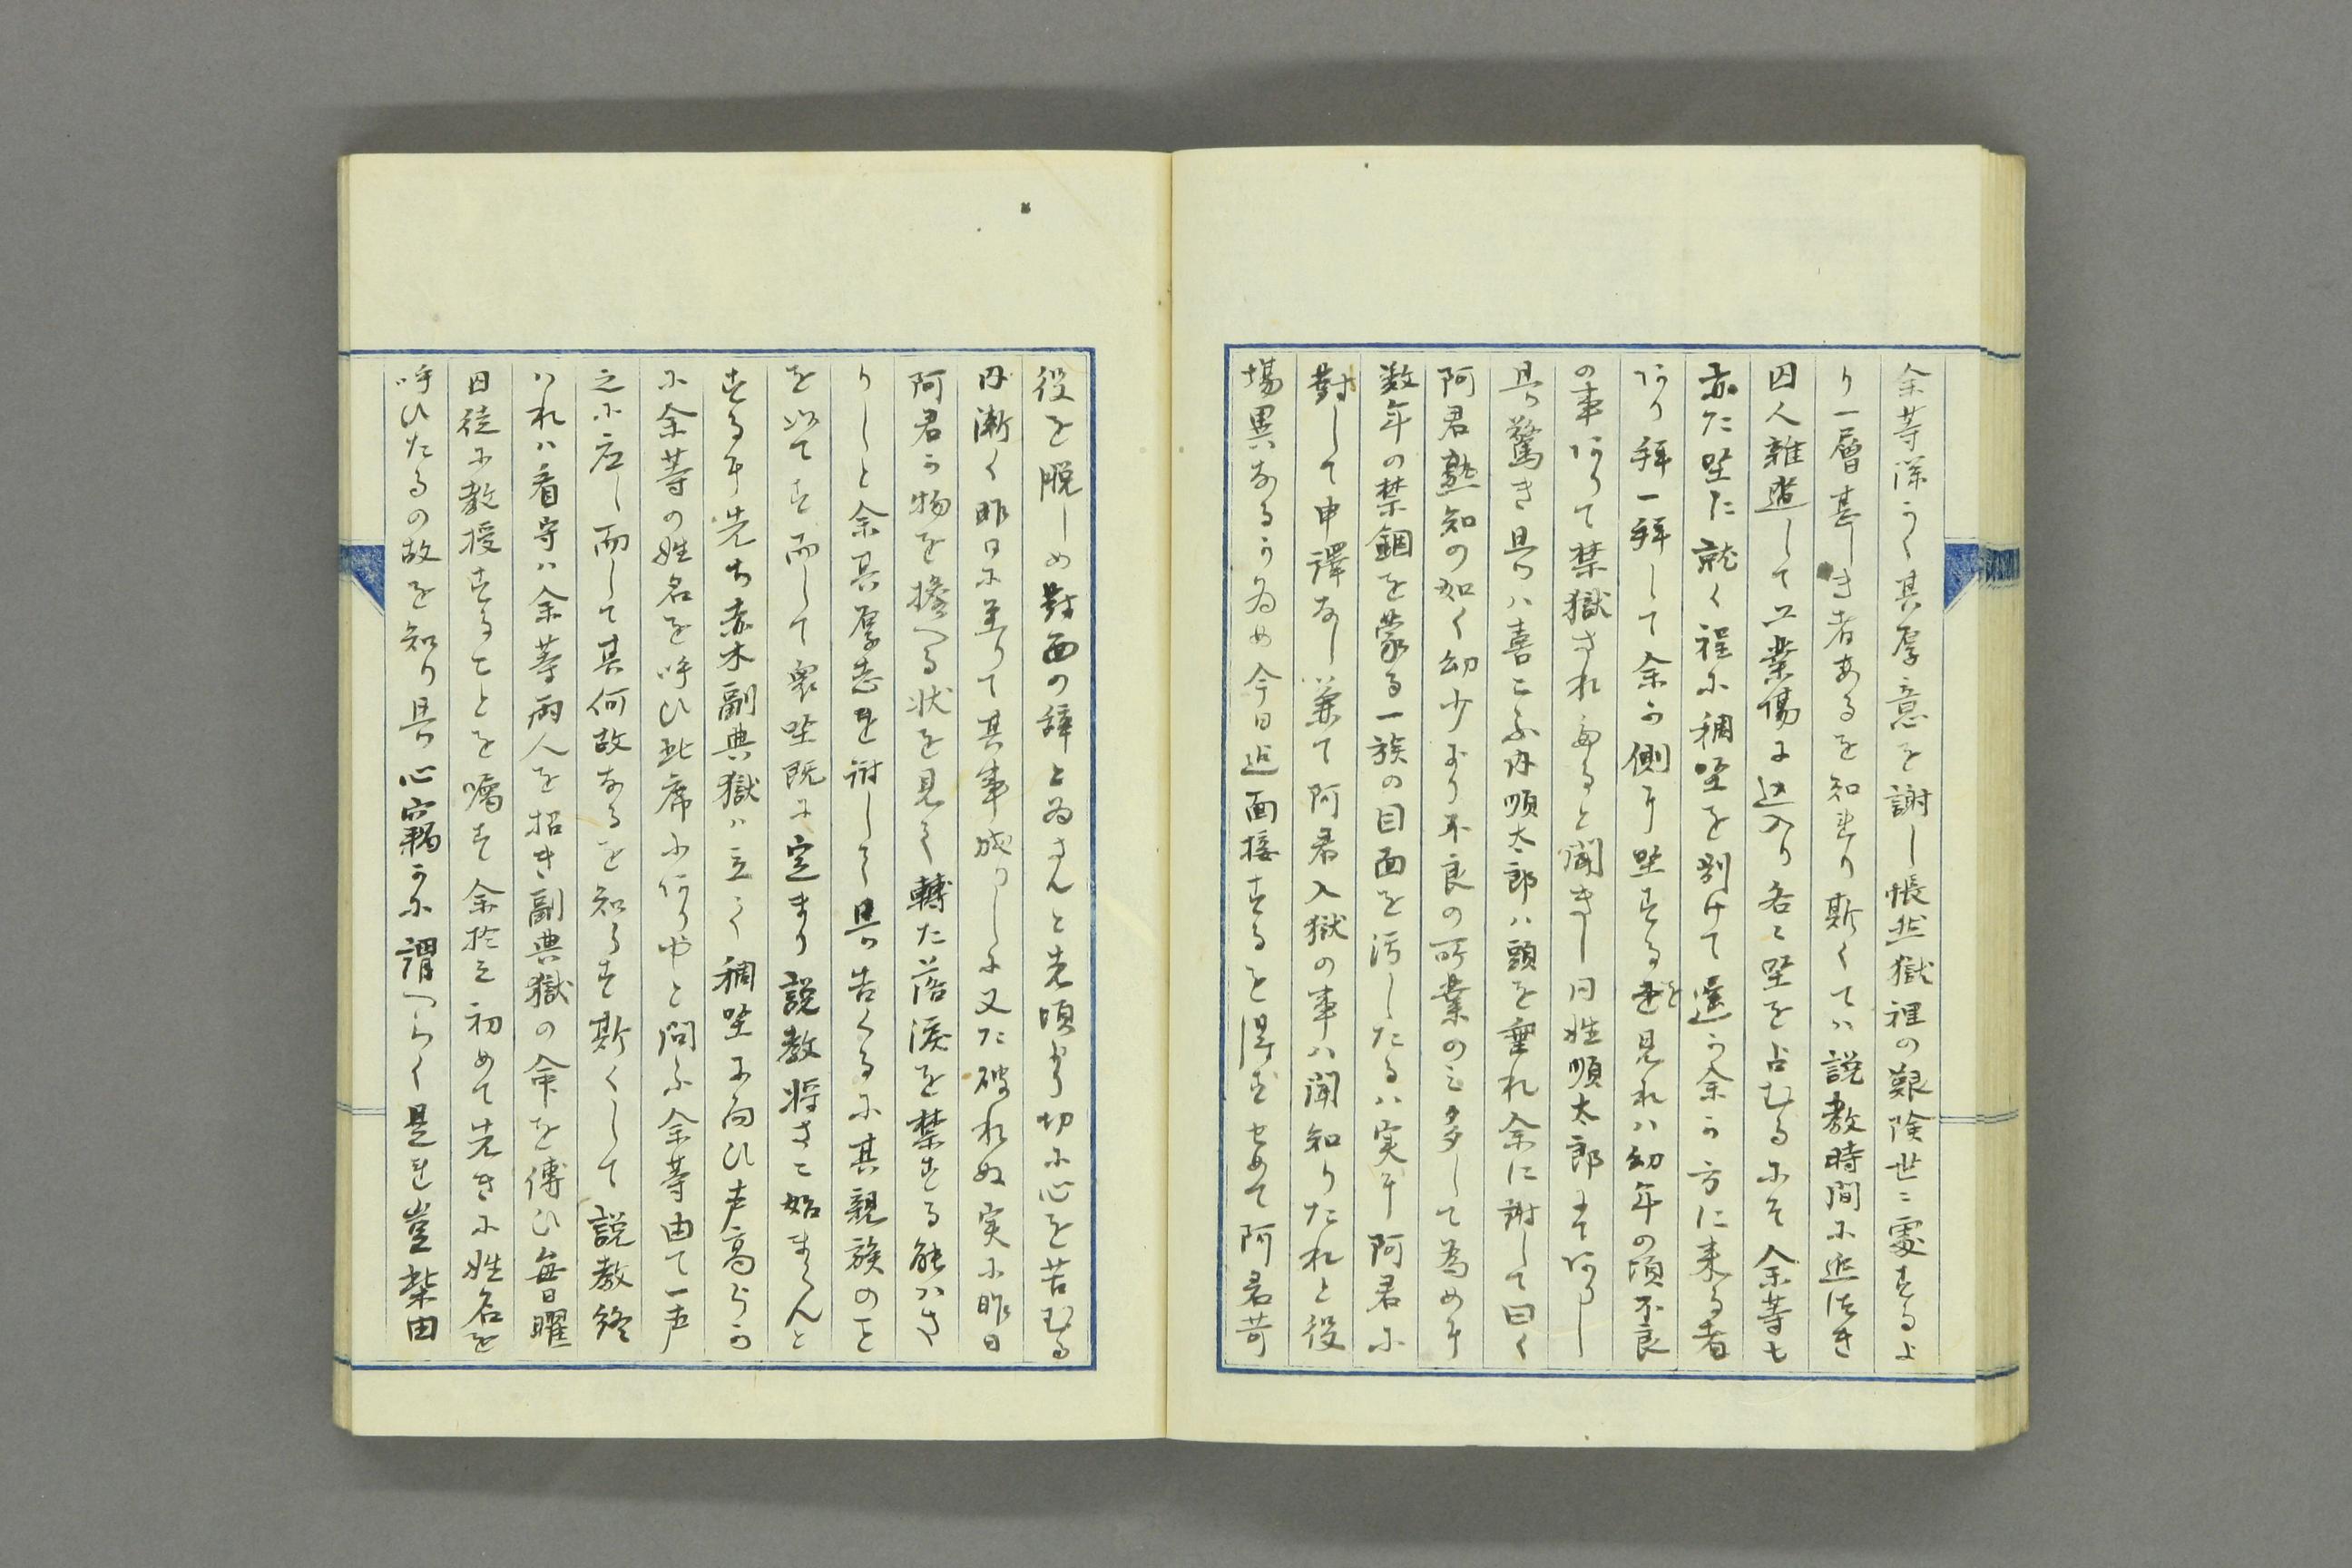 余等深く其厚意を謝し悵然獄裡の艱険世ニ處するよ
り一層甚しき者あるを知れり斯くてハ説教時間に近付き
囚人雑沓して工業場に込入り各々坐を占むるにそ余等も
亦た坐に就く程に稠坐を別けて遥か余か方に来る者
あり拜一拜して余か側に坐するを見れハ幼年の頃不良
の事ありて禁獄されたると聞きし同姓順太郎にてありし
且つ驚き且つハ喜こふ内順太郎ハ頭を垂れ余に謝して曰く
阿君熟知の如く幼少より不良の所業のミ多して為めに
数年の禁錮を蒙る一族の目面を汚したるハ実に阿君に
對して申譯なし兼て阿君入獄の事ハ聞知りたれと役
場異なるか為め今日迄面接するを得すせめて阿君苛
役を脱しめ對面の辞と為さんと先頃より切に心を苦むる
内漸く昨日に至りて其事成りしに又た破れぬ実に昨日
阿君か物を擔へる状を見て轉た落涙を禁する能ハさ
りしと余其厚志を謝して且つ告くるに其親族のこと
を以てす而して衆坐既に定まり説教将さに始まらんと
するに先ち赤木副典獄ハ立て稠坐に向ひ声高らか
に余等の姓名を呼ひ此席にありやと問ふ余等由て一声
之に応し而して其何故なるを知らす斯くして説教終
ハれハ看守ハ余等両人を招き副典獄の命を傳ひ毎日曜
囚徒に教授することを嘱す余於是初めて先きに姓名を
呼ひたるの故を知り且つ心竊かに謂へらく是を豈柴田